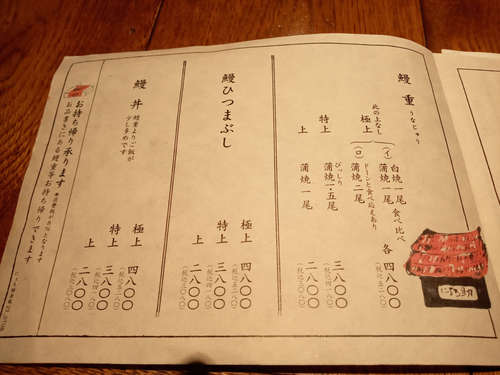 鰻重 うなじゅう
此の上なし
極上
(イ) 白焼一尾 食べ比べ
蒲焼一尾
(ロ) ドーンと食べ応えあり
蒲焼二尾
各 四八〇〇
特上
びっしり
蒲焼一・五尾
三八〇〇
上
蒲焼一尾
二八〇〇
鰻ひつまぶし
極上 四八〇〇
特上 三八〇〇
上 二八〇〇
鰻丼
鰻重よりご飯が
少し多めです
極上 四八〇〇
特上 三八〇〇
上 二八〇〇
お持ち帰り承ります
お品書きにある鰻重等お持ち帰りできます